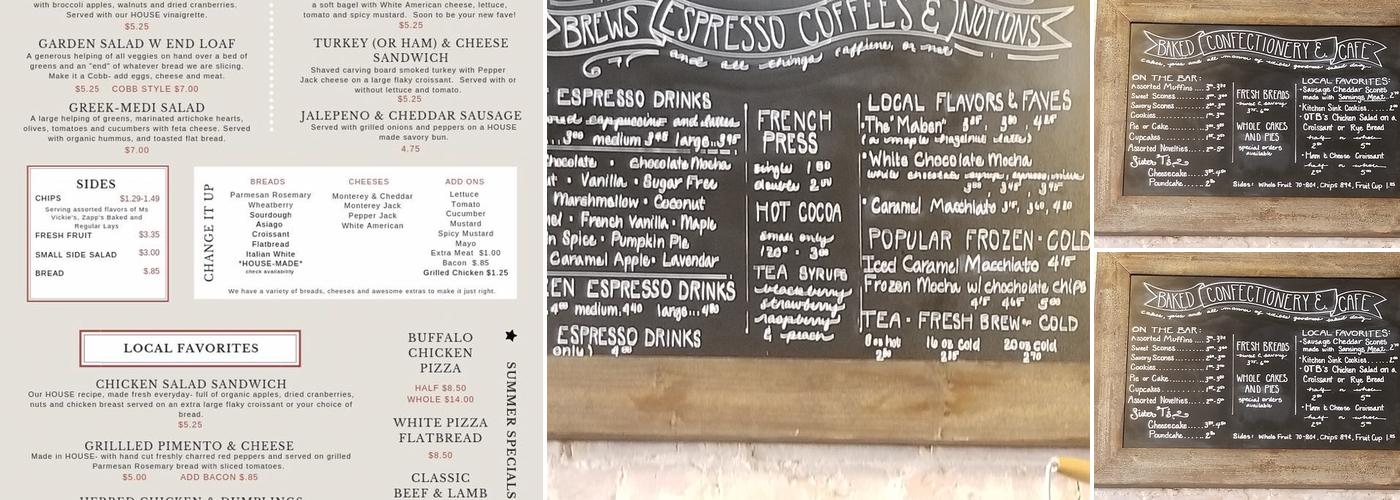 with broccoli apples, walnuts and dried cranberries.
Served with our HOUSE vinaigrette.
$5.25
GARDEN SALAD W END LOAF
A generous helping of all veggies on hand over a bed of
greens and an "end" of whatever bread we are slicing.
Make it a Cobb- add eggs, cheese and meat.
$5.25 COBB STYLE $7.00
GREEK-MEDI SALAD
A large helping of greens, marinated artichoke hearts,
olives, tomatoes and cucumbers with feta cheese. Served
with organic hummus, and toasted flat bread.
$7.00
a soft bagel with White American cheese, lettuce,
tomato and spicy mustard. Soon to be your new fave!
$5.25
TURKEY (OR HAM) & CHEESE
SANDWICH
Shaved carving board smoked turkey with Pepper
Jack cheese on a large flaky croissant. Served with or
without lettuce and tomato.
$5.25
JALEPENO & CHEDDAR SAUSAGE
Served with grilled onions and peppers on a HOUSE
made savory bun.
4.75
SIDES
CHIPS $1.29-1.49
Serving assorted flavors of Ms
Vickie's, Zapp's Baked and
Regular Lays
FRESH FRUIT $3.35
SMALL SIDE SALAD $3.00
BREAD $.85
CHANGE IT UP
BREADS
Parmesan Rosemary
Wheatberry
Sourdough
Asiago
Croissant
Flatbread
Italian White
*HOUSE-MADE*
check availability
CHEESES
Monterey & Cheddar
Monterey Jack
Pepper Jack
White American
ADD ONS
Lettuce
Tomato
Cucumber
Mustard
Spicy Mustard
Mayo
Extra Meat $1.00
Bacon $.85
Grilled Chicken $1.25
We have a variety of breads, cheeses and awesome extras to make it just right.
LOCAL FAVORITES
CHICKEN SALAD SANDWICH
Our HOUSE recipe, made fresh everyday- full of organic apples, dried cranberries,
nuts and chicken breast served on an extra large flaky croissant or your choice of
bread.
$5.25
GRILLLED PIMENTO & CHEESE
Made in HOUSE- with hand cut freshly charred red peppers and served on grilled
Parmesan Rosemary bread with sliced tomatoes.
$5.00 ADD BACON $.85
HERBED CHICKEN & DUMPLINGS
BUFFALO
CHICKEN
PIZZA
HALF $8.50
WHOLE $14.00
WHITE PIZZA
FLATBREAD
$8.50
CLASSIC
BEEF & LAMB
SUMMER SPECIALS
BREWS ESPRESSO COFFEES & NOTIONS
and all things caffeine, or not
ESPRESSO DRINKS
cappuccino and lattes
3.00 medium 3.45 large
Chocolate · Chocolate Mocha
Vanilla · Sugar Free
Marshmallow · Coconut
French Vanilla · Maple
Spice · Pumpkin Pie
Caramel Apple · Lavender
ESPRESSO DRINKS
medium 4.40 large
ESPRESSO DRINKS
only)
FRENCH
PRESS
single
double
HOT COCOA
small only
TEA SYRUPS
blackberry
strawberry
raspberry
& peach
LOCAL FLAVORS & FAVES
"The Mabon"
White Chocolate Mocha
Caramel Macchiato
POPULAR FROZEN · COLD
Iced Caramel Macchiato 4.15
Frozen Mocha w/ chocolate chips
4.15 4.65 5.00
TEA · FRESH BREW · COLD
8 oz hot 16 oz cold 20 oz cold
BAKED CONFECTIONERY & CAFE
ON THE BAR:
Assorted Muffins
Sweet Scones
Savory Scones
Cookies
Pie or Cake
Cupcakes
Assorted Novelties
Cheesecake
Poundcake
FRESH BREADS
sweet & savory
WHOLE CAKES
AND PIES
special orders
available
LOCAL FAVORITES:
Sausage Cheddar Scones
made with Samings Meat
Kitchen Sink Cookies
OTB's Chicken Salad on a
Croissant or Rye Bread
half or whole
Ham & Cheese Croissant
half or whole
Sides: Whole Fruit .70-.80¢, Chips .89¢, Fruit Cup
BAKED CONFECTIONERY & CAFE
ON THE BAR:
Assorted Muffins
Sweet Scones
Savory Scones
Cookies
Pie or Cake
Cupcakes
Assorted Novelties
Cheesecake
Poundcake
FRESH BREADS
sweet & savory
WHOLE CAKES
AND PIES
special orders
available
LOCAL FAVORITES:
Sausage Cheddar Scones
made with Samings Meat
Kitchen Sink Cookies
OTB's Chicken Salad on a
Croissant or Rye Bread
half or whole
Ham & Cheese Croissant
half or whole
Sides: Whole Fruit .70-.80¢, Chips .89¢, Fruit Cup